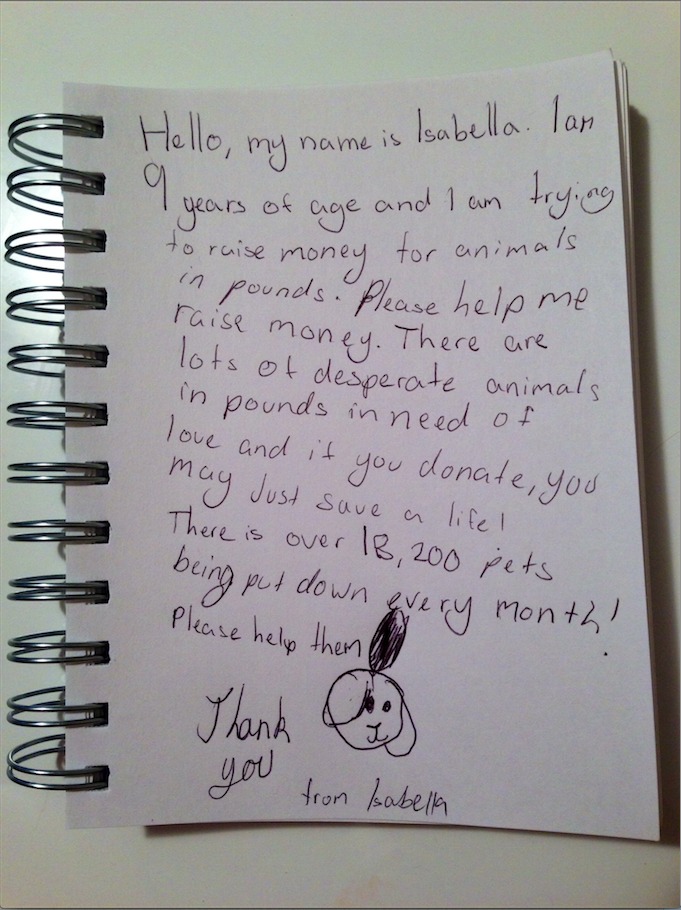 Hello, my name is Isabella. I am
9 years of age and I am trying
to raise money for animals
in pounds. Please help me
raise money. There are
lots of desperate animals
in pounds in need of
love and if you donate, you
may Just save a life!
There is over 18,200 pets
being put down every month!
Please help them.
Thank
you
from Isabella